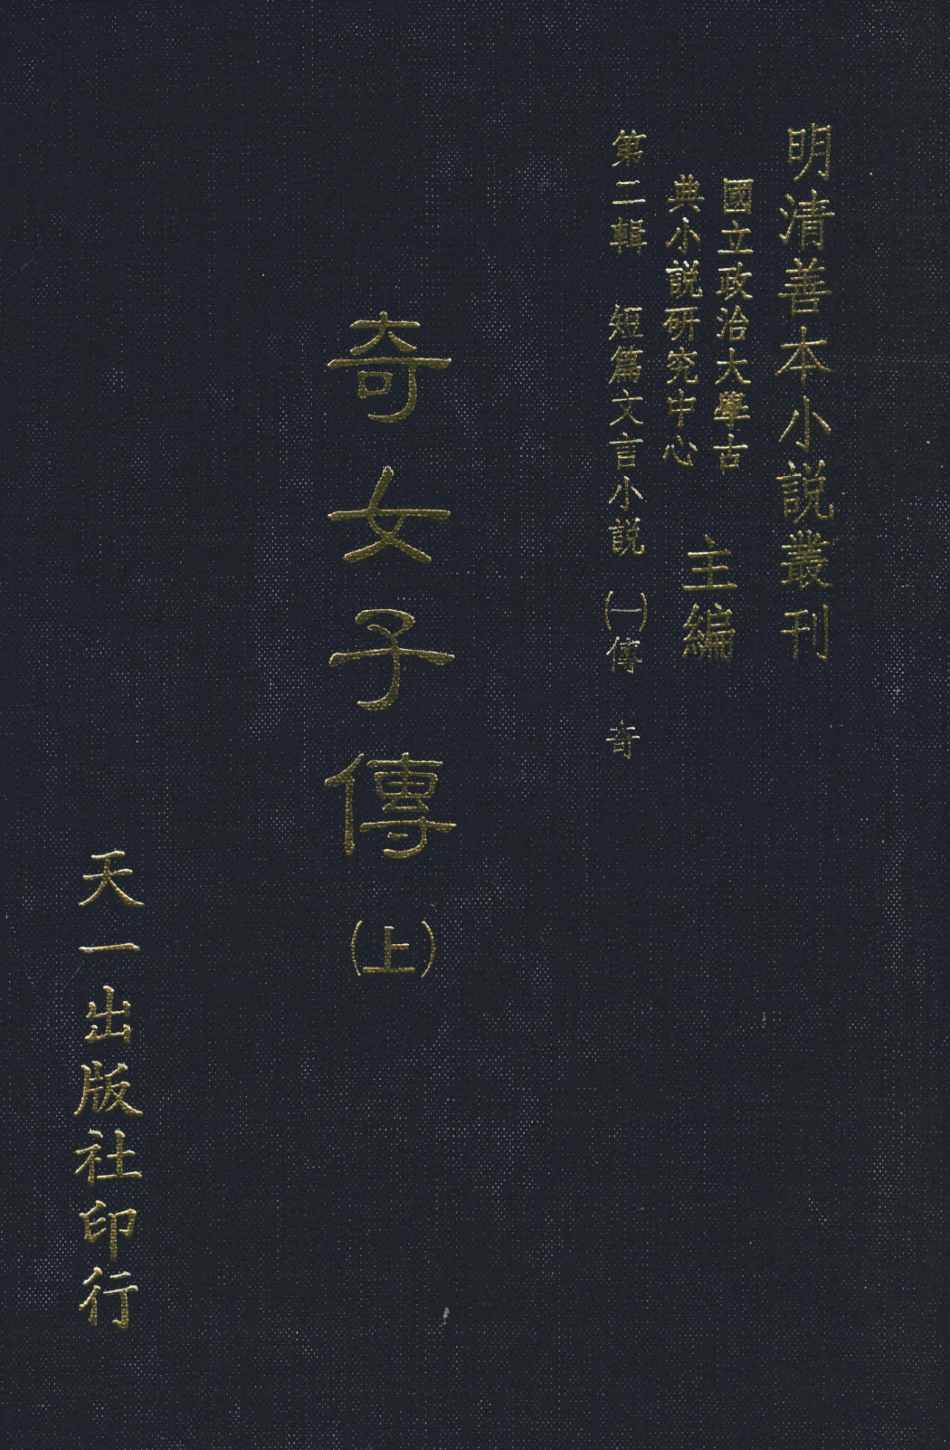 明清善本小説叢刊
國立政治大學古
典小説研究中心
主編
第二輯 短篇文言小説 (一)傳 奇
奇女子傳(上)
天一出版社印行